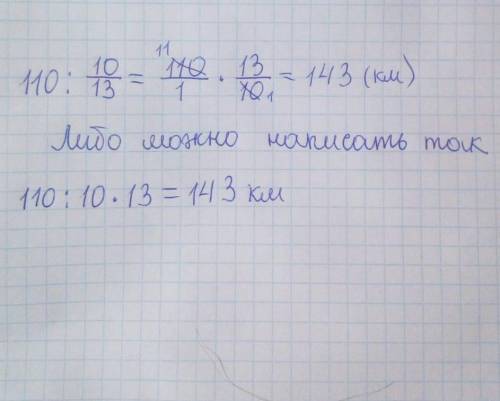 110 : 10/13 = 11 110/1 · 13/10 1 = 143 (км)
Либо можно написать так
110 : 10 · 13 = 143 км